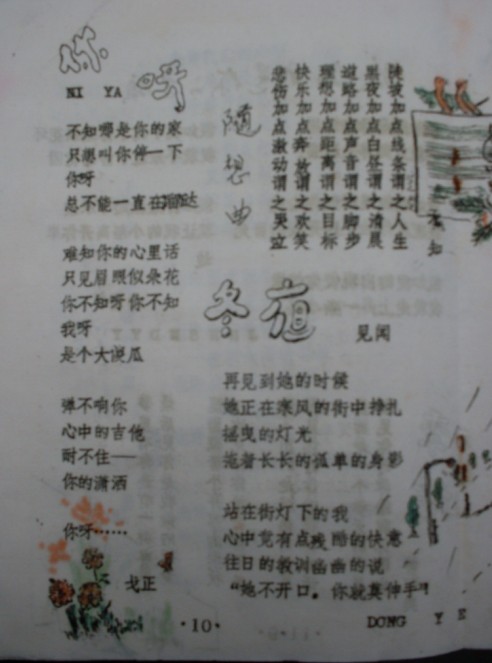 你呀
NI YA
不知哪是你的家
只想叫你停一下
你呀
总不能一直在蹓跶
难知你的心里话
只见眉眼似朵花
你不知呀你不知
我呀
是个大傻瓜
弹不响你
心中的吉他
耐不住——
你的潇洒
你呀……
戈正
随想曲
陡坡加点线条谓之人生
黑夜加点白昼谓之清晨
道路加点声音谓之脚步
理想加点距离谓之目标
快乐加点奔放谓之欢笑
悲伤加点激动谓之哭泣
知
冬夜
见闻
再见到她的时候
她正在寒风的街中挣扎
摇曳的灯光
拖着长长的孤单的身影
站在街灯下的我
心中竟有点残酷的快意
往日的教训幽幽的说
“她不开口，你就莫伸手”！
DONG YE
·10·